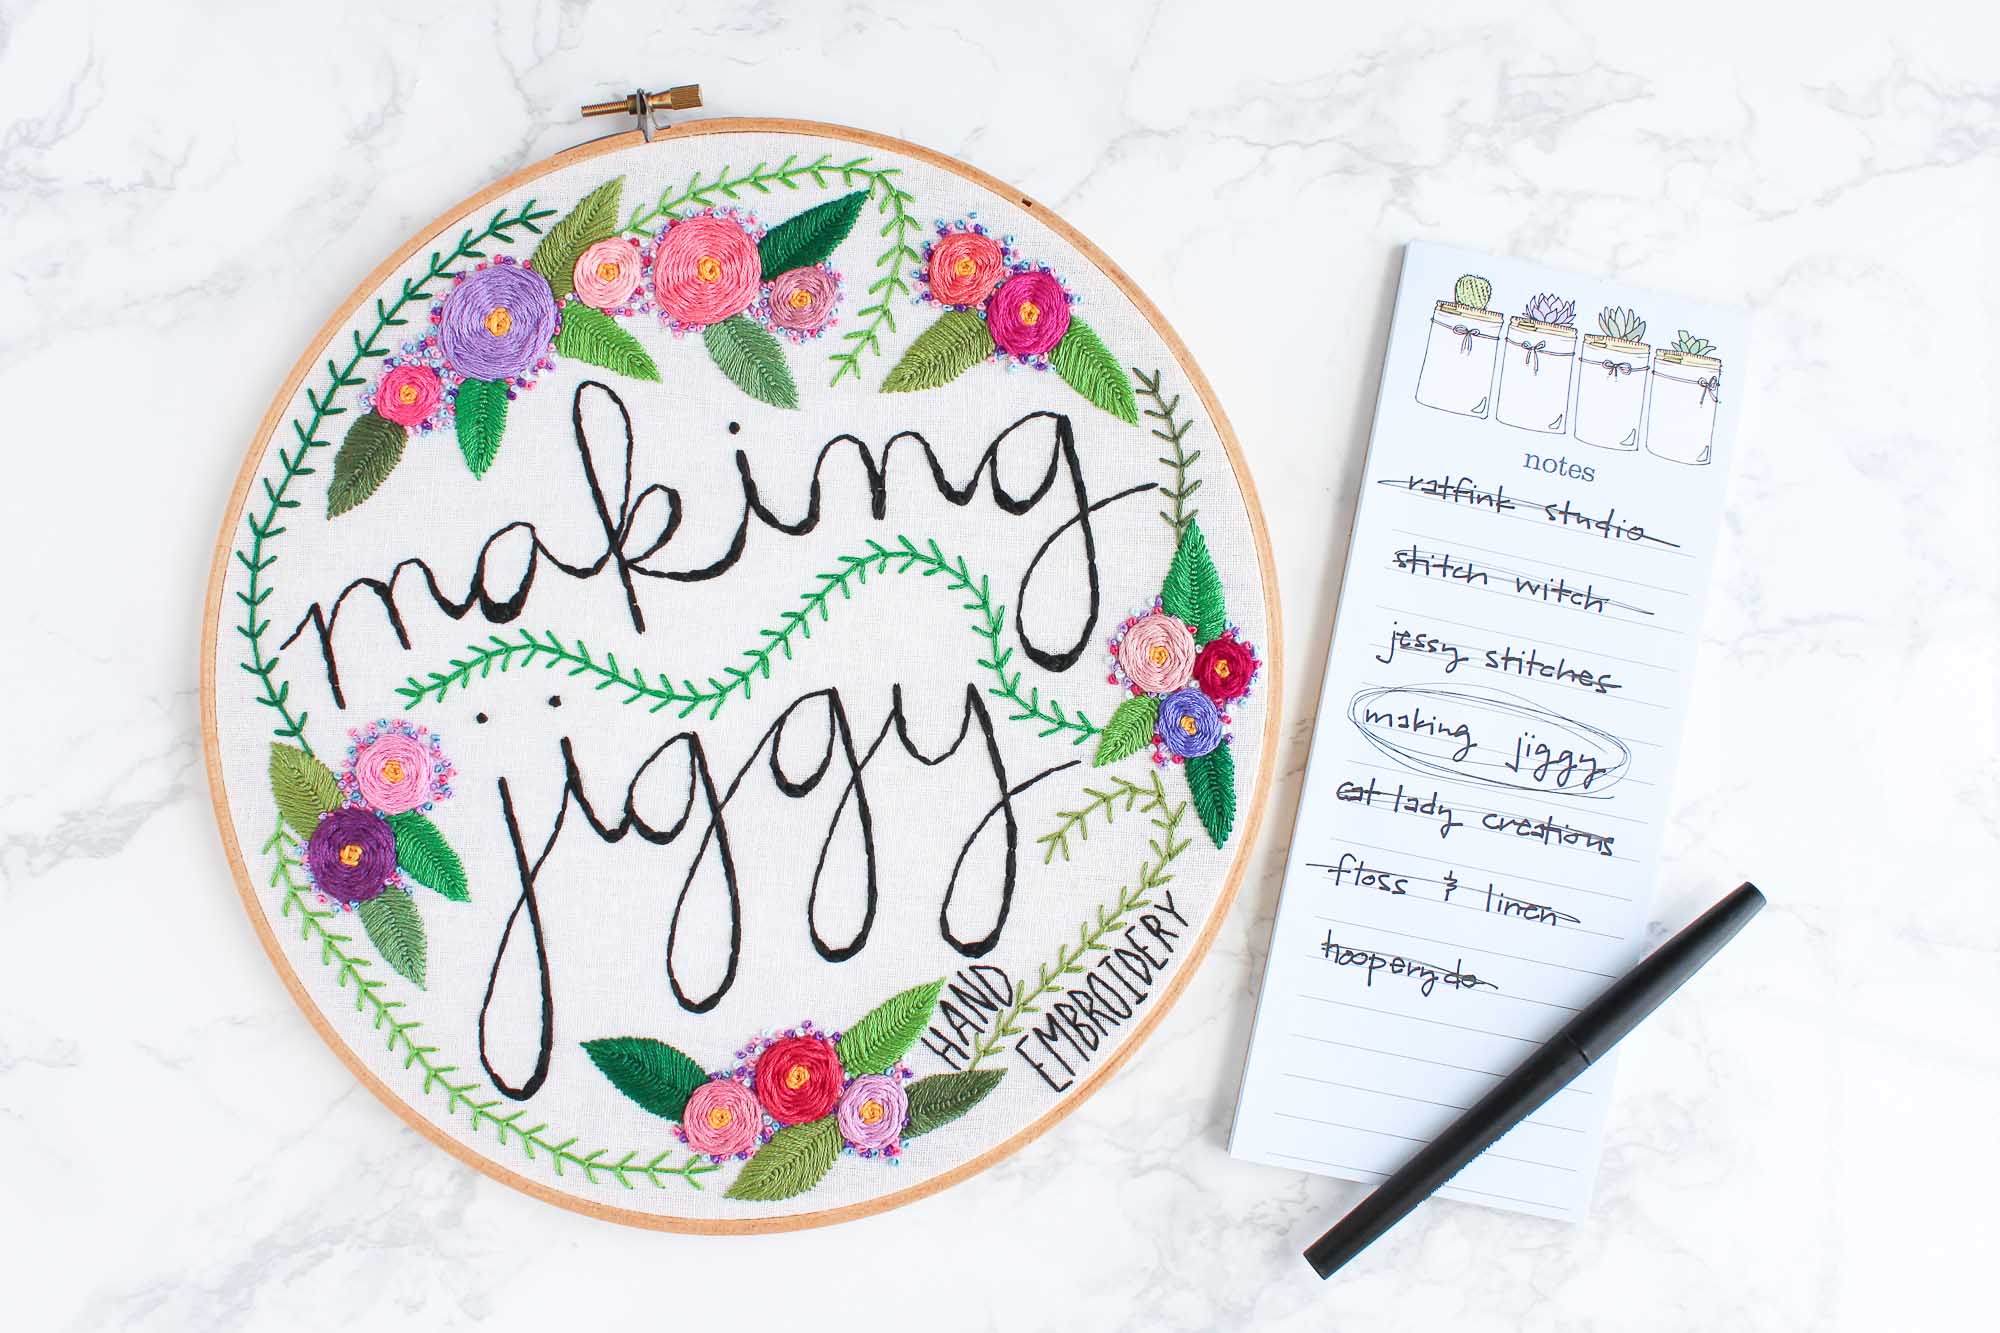 making
jiggy
HAND
EMBROIDERY
notes
ratfink studio
stitch witch
jessy stitches
making jiggy
cat lady creations
floss & linen
hooperydo